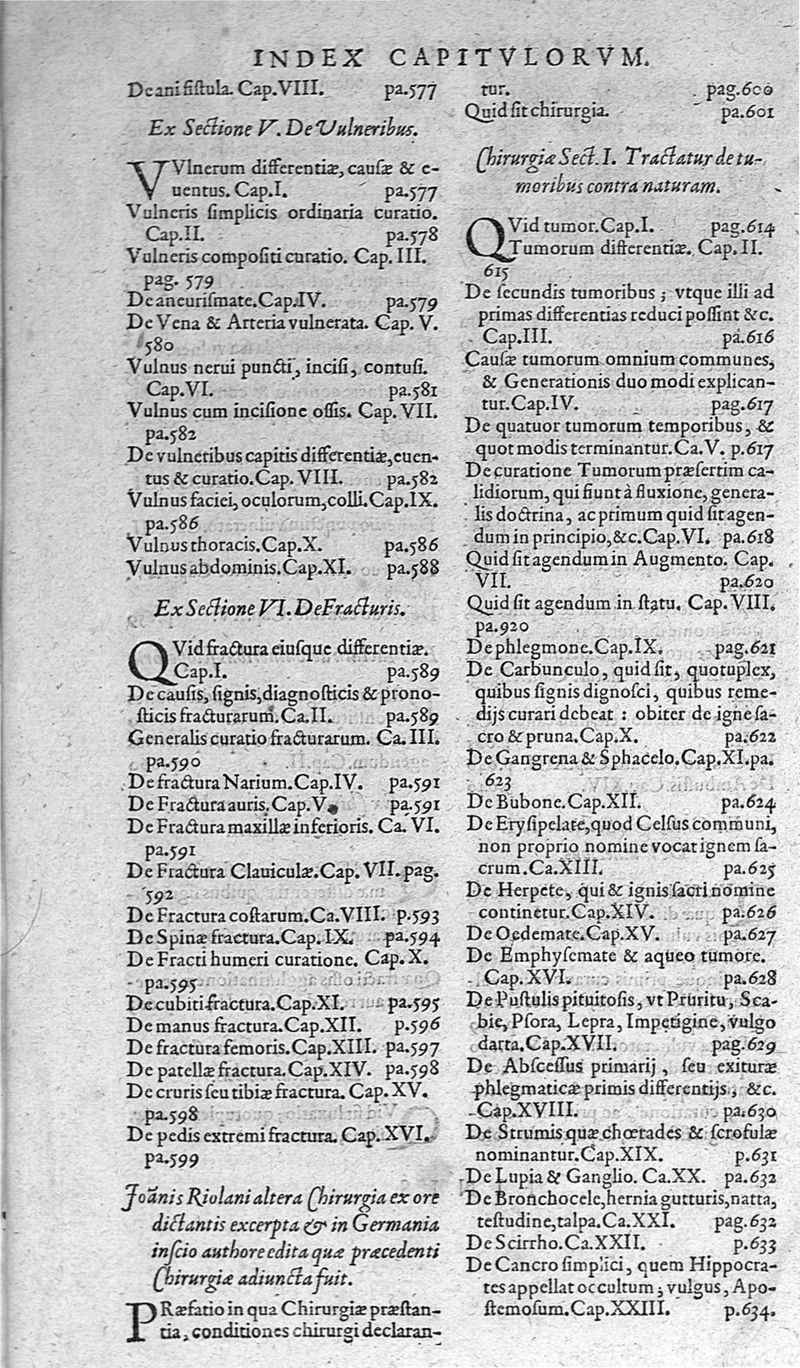 INDEX CAPITVLORVM.
De ani fiſtula. Cap.VIII. pa.577
Ex Sectione V. De Vulneribus.
VVlnerum differentiæ, cauſæ & e-
uentus. Cap.I. pa.577
Vulneris ſimplicis ordinaria curatio.
Cap.II. pa.578
Vulneris compoſiti curatio. Cap. III.
pag. 579
De aneuriſmate.Cap.IV. pa.579
De Vena & Arteria vulnerata. Cap. V.
580
Vulnus nerui puncti, inciſi, contuſi.
Cap.VI. pa.581
Vulnus cum inciſione oſſis. Cap. VII.
pa.582
De vulneribus capitis differentiæ,euen-
tus & curatio.Cap. VIII. pa.582
Vulnus faciei, oculorum,colli.Cap.IX.
pa.586
Vulnus thoracis.Cap.X. pa.586
Vulnus abdominis.Cap.XI. pa.588
Ex Sectione VI. De Fracturis.
QVid fractura eiuſque differentiæ.
Cap.I. pa.589
De cauſis, ſignis,diagnoſticis & prono-
ſticis fracturarum.Ca.II. pa.589
Generalis curatio fracturarum. Ca.III.
pa.590
De fractura Narium.Cap.IV. pa.591
De Fractura auris.Cap.V. pa.591
De Fractura maxillæ inferioris. Ca. VI.
pa.591
De Fractura Clauiculæ.Cap. VII. pag.
592
De Fractura coſtarum.Ca.VIII. p.593
De Spinæ fractura.Cap. IX. pa.594
De Fracti humeri curatione. Cap. X.
pa.595
De cubiti fractura.Cap.XI. pa.595
De manus fractura.Cap.XII. p.596
De fractura femoris.Cap.XIII. pa.597
De patellæ fractura.Cap.XIV. pa.598
De cruris ſeu tibiæ fractura. Cap.XV.
pa.598
De pedis extremi fractura. Cap.XVI.
pa.599
Joãnis Riolani altera Chirurgia ex ore
dictantis excerpta & in Germania
inſcio authore edita quæ præcedenti
Chirurgiæ adiuncta fuit.
PRæfatio in qua Chirurgiæ præſtan-
tia, conditiones chirurgi declaran-
tur. pag.600
Quid ſit chirurgia. pa.601
Chirurgiæ Sect. I. Tractatur de tu-
moribus contra naturam.
QVid tumor.Cap.I. pag.614
Tumorum differentiæ. Cap. II.
615
De ſecundis tumoribus ; vtque illi ad
primas differentias reduci poſſint &c.
Cap.III. pa.616
Cauſæ tumorum omnium communes,
& Generationis duo modi explican-
tur.Cap.IV. pag.617
De quatuor tumorum temporibus, &
quot modis terminantur.Ca.V. p.617
De curatione Tumorum præſertim ca-
lidiorum, qui fiunt à fluxione, genera-
lis doctrina, ac primum quid ſit agen-
dum in principio,&c.Cap.VI. pa.618
Quid ſit agendum in Augmento. Cap.
VII. pa.620
Quid ſit agendum in ſtatu. Cap. VIII.
pa.920
De phlegmone.Cap.IX. pag.621
De Carbunculo, quid ſit, quotuplex,
quibus ſignis dignoſci, quibus reme-
dijs curari debeat : obiter de igne ſa-
cro & pruna.Cap.X. pa.622
De Gangrena & Sphacelo.Cap.XI.pa.
623
De Bubone.Cap.XII. pa.624
De Eryſipelate,quod Celſus communi,
non proprio nomine vocat ignem ſa-
crum.Ca.XIII. pa.625
De Herpete, qui & ignis ſacri nomine
continetur.Cap.XIV. pa.626
De Oedemate.Cap.XV. pa.627
De Emphyſemate & aqueo tumore.
Cap.XVI. pa.628
De Puſtulis pituitoſis, vt Pruritu, Sca-
bie, Pſora, Lepra, Impetigine, vulgo
darta.Cap.XVII. pag.629
De Abſceſſus primarij , ſeu exituræ
phlegmaticæ primis differentijs, &c.
Cap.XVIII. pa.630
De Strumis quæ chœrades & ſcrofulæ
nominantur.Cap.XIX. p.631
De Lupia & Ganglio. Ca.XX. pa.632
De Bronchocele,hernia gutturis,natta,
teſtudine,talpa.Ca.XXI. pag.632
De Scirrho.Ca.XXII. p.633
De Cancro ſimplici, quem Hippocra-
tes appellat occultum ; vulgus, Apo-
ſtemoſum.Cap.XXIII. p.634.